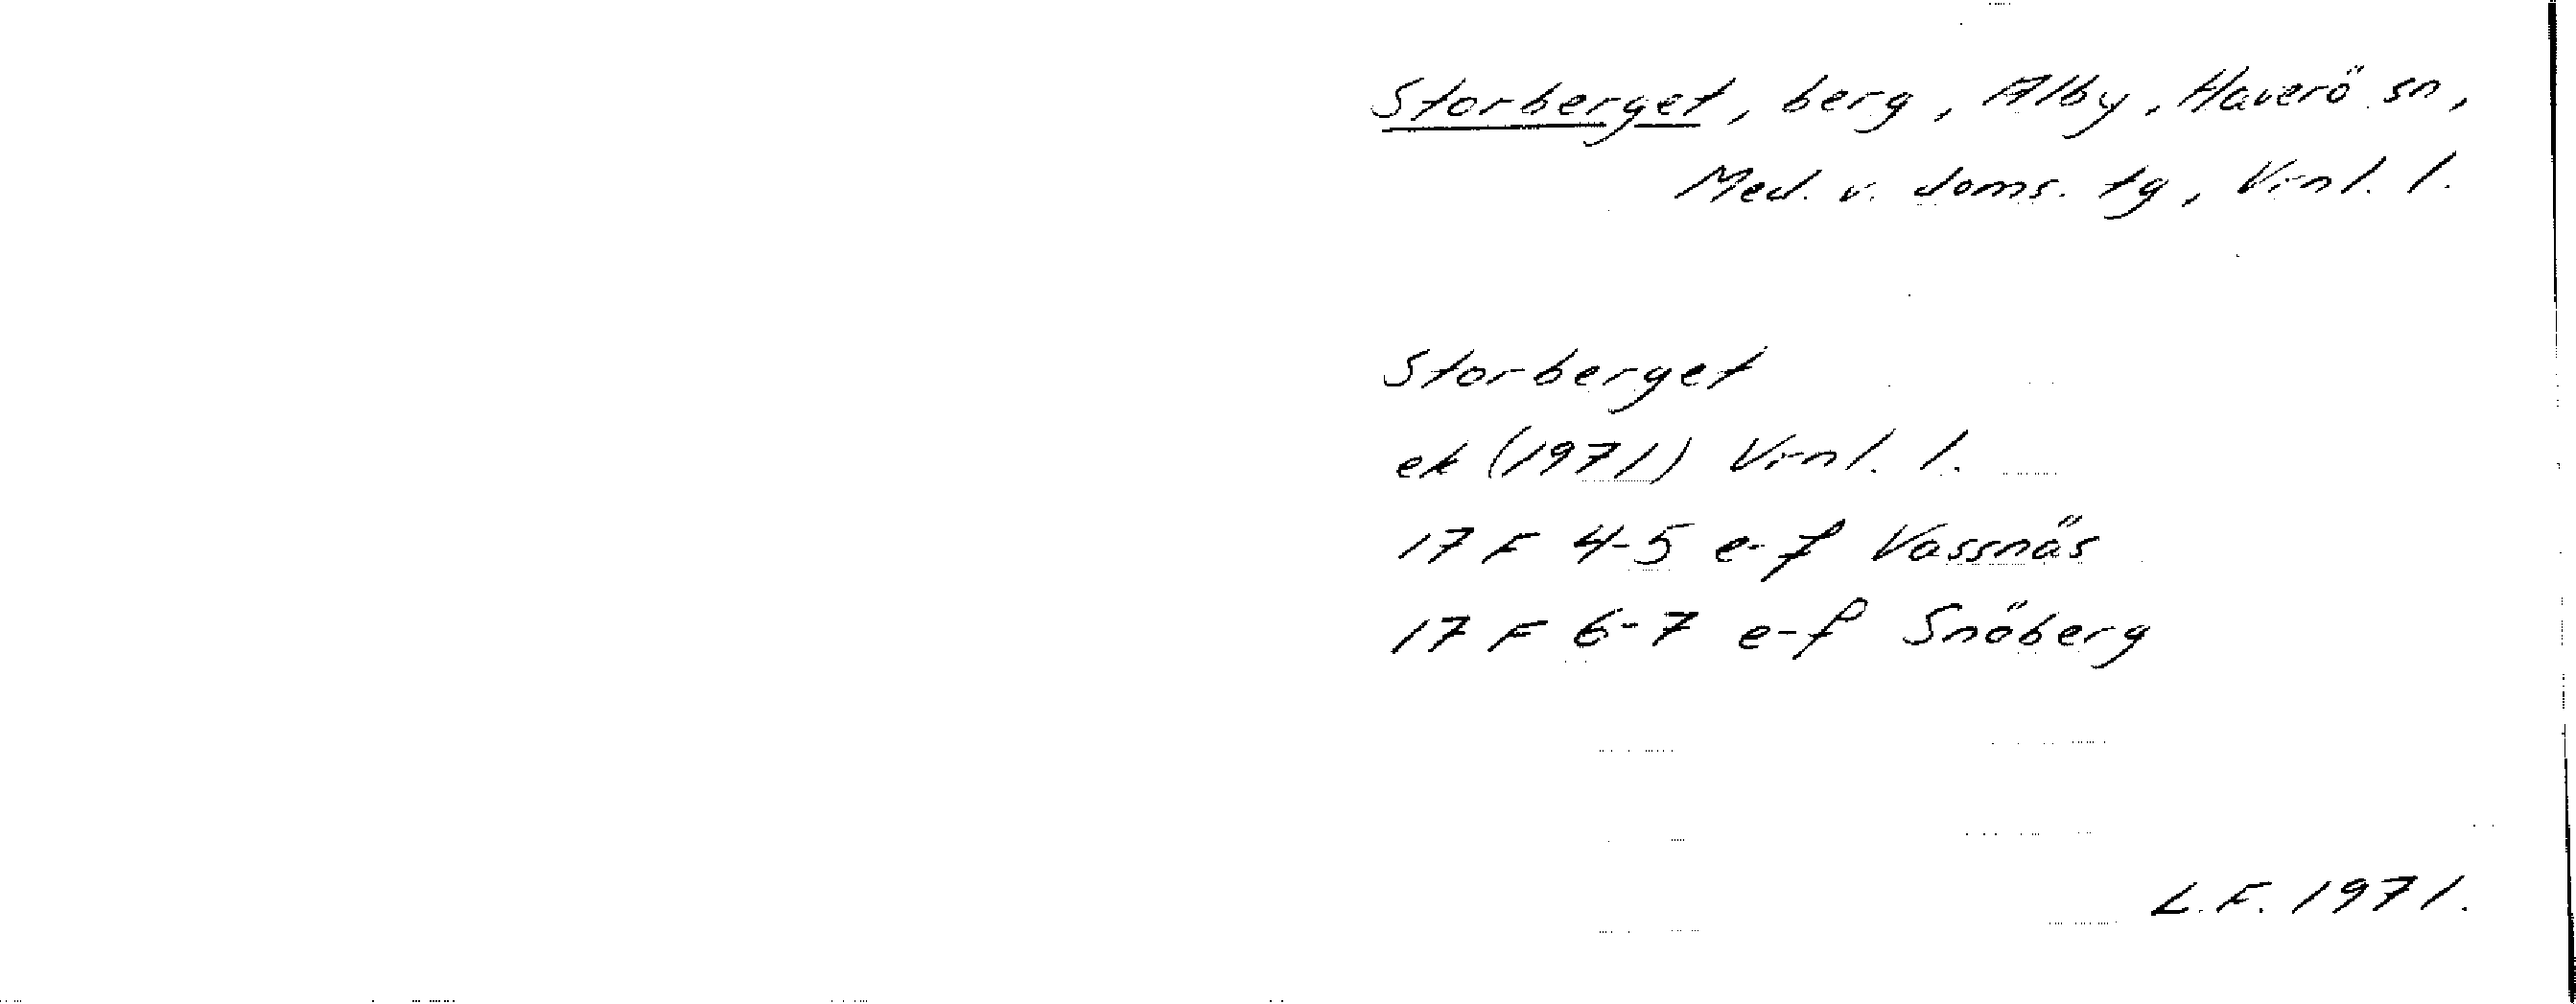 Storberget, berg, Alby, Haverö sn,
Med. v. doms. tg, Vrnl. l.
Storberget
ek (1971) Vrnl. l.
17 F 4-5 e-f Vassnäs
17 F 6-7 e-f Snöberg
L.F. 1971.